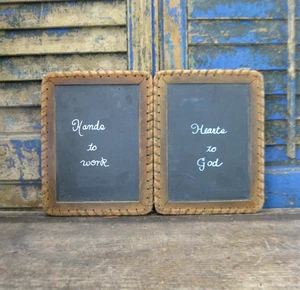 Hands
to
work
Hearts
to
God